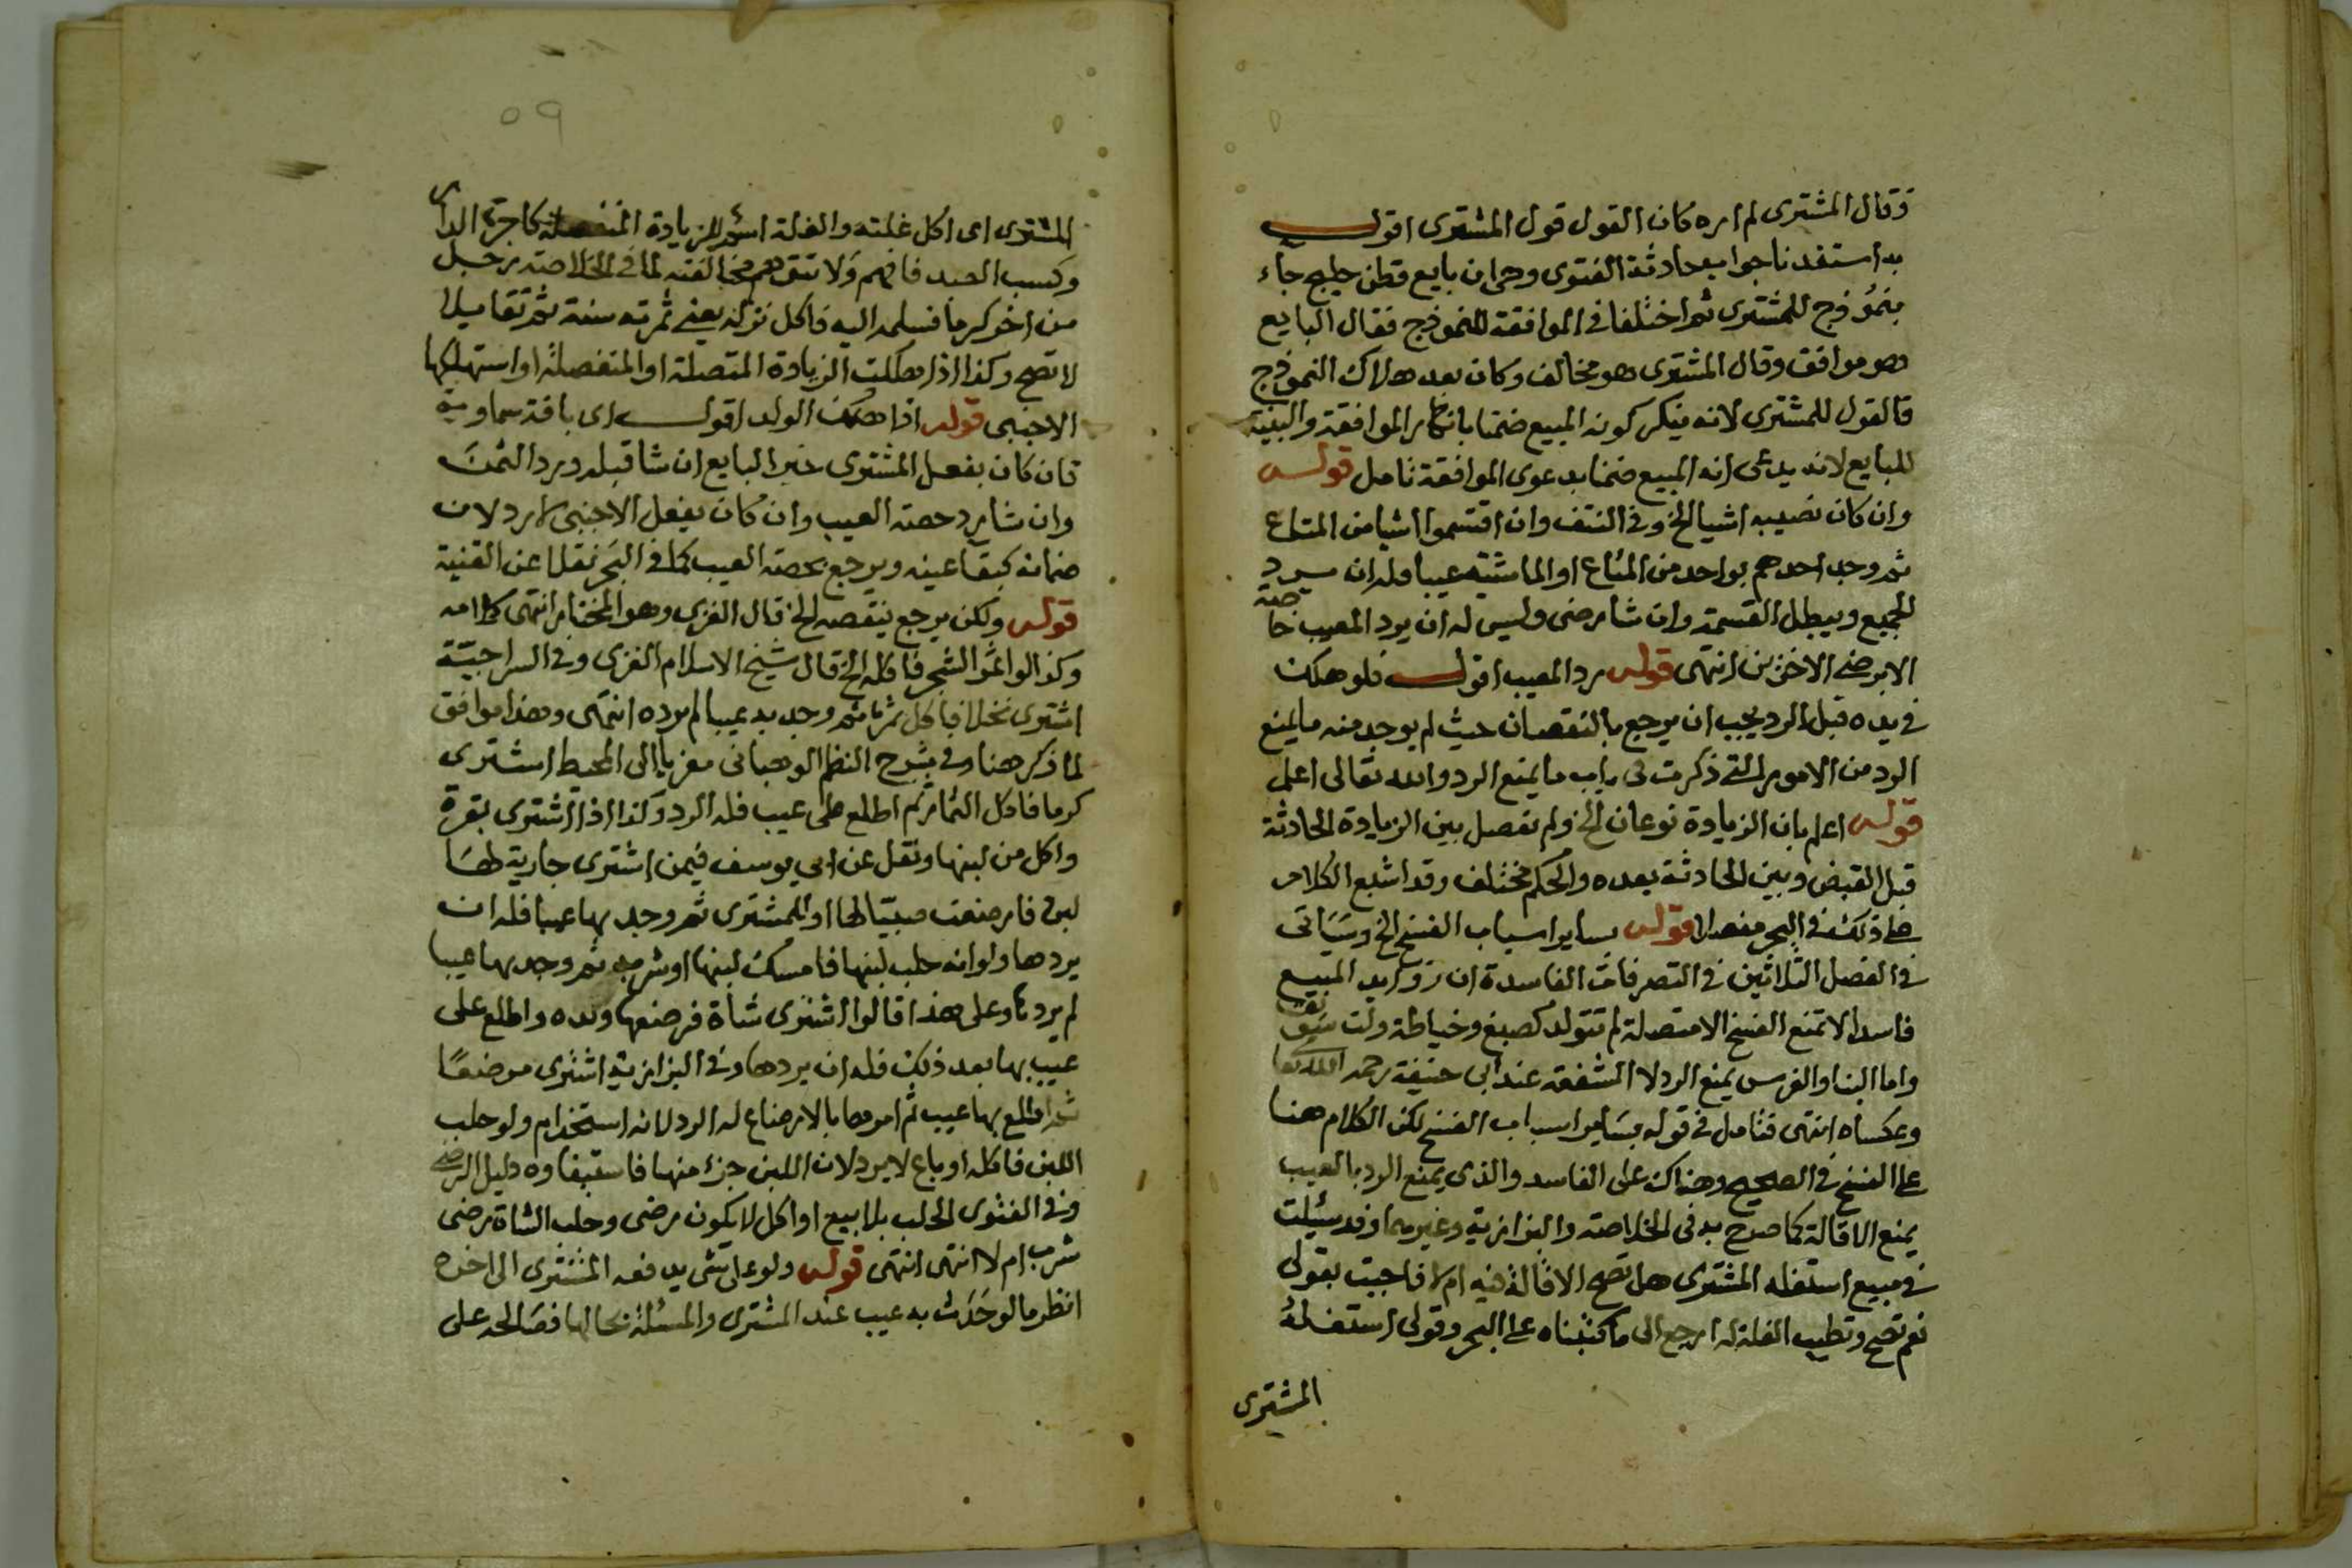 وقال المشترى لم اره كان القول قول المشترى اقول
به استفدنا جواب حادثة الفتوى وهى ان بايع قطن حليج جاء
بنموذج للمشترى ثم اختلفا فى الموافقة للنموذج فقال البايع
هو موافق وقال المشترى هو مخالف وكان بعد هلاك النموذج
فالقول للمشترى لانه ينكر كونه المبيع ضمنا بانكار الموافقة والبينة
للبايع لانه يدعى انه المبيع ضمنا بدعوى الموافقة تامل قوله
وان كان نصيبه اشيا الخ وفى النتف وان اقتسموا اشيا من المتاع
ثم وجد احدهم بواحد من المتاع او الماشية عيبا فله ان يرد
الجميع ويبطل القسمة وان شا رضى وليس له ان يرد المعيب خاصة
الا برضى الاخرين انتهى قوله رد المعيب اقول فلو هلك
فى يده قبل الرد يجب ان يرجع بالنقصان حيث لم يوجد منه ما يمنع
الرد من الامور التى ذكرت فى باب ما يمنع الرد والله تعالى اعلم
قوله اعلم بان الزيادة نوعان الخ ولم يفصل بين الزيادة الحادثة
قبل القبض وبين الحادثة بعده والحكم مختلف وقد اشبع الكلام
على ذلك فى البحر مفصلا قوله بساير اسباب الفسخ الخ وسياتى
فى الفصل الثلاثين فى التصرفات الفاسدة ان زوايد المبيع
فاسدا لا تمنع الفسخ الا متصلة لم تتولد كصبغ وخياطة ولت سويق
واما البنا والغرس يمنع الرد لا الشفعة عند ابى حنيفة رحمه الله تعا
وعكساه انتهى فتامل فى قوله بساير اسباب الفسخ لكن الكلام هنا
على الفسخ فى الصحيح وهناك على الفاسد والذى يمنع الرد بالعيب
يمنع الاقالة كما صرح به فى الخلاصة والبزازية وغيرهما وقد سئلت
فى مبيع استغله المشترى هل تصح الاقالة فيه ام لا فاجبت بقولى
نعم تصح وتطيب الغلة له ارجع الى ما كتبناه على البحر وقولى استغله
المشترى
٥٩
المشترى اى اكل غلته والغلة اسم للزيادة المنفصلة كاجرة الدار
وكسب العبد فافهم ولا تتوهم مخالفته لما فى الخلاصة رجل
من اخر كرما فسلمه اليه فاكل نزله يعنى ثمرته سنة ثم تقايلا
لا تصح وكذا اذا هلكت الزيادة المتصلة او المنفصلة او استهلكها
الاجنبى قوله اذا هلك الولد اقول اى بافة سماوية
فان كان بفعل المشترى خير البايع ان شا قبله ورد الثمن
وان شا رد حصة العيب وان كان بفعل الاجنبى لا يرد لان
ضمانه كبقا عينه ويرجع بحصة العيب كما فى البحر نقلا عن القنية
قوله ولكن يرجع بنقصه الخ قال الغزى وهو المختار انتهى كلامه
وكذا لو اثمر الشجر فاكله الخ قال شيخ الاسلام الغزى وفى السراجية
اشترى نخلا فاكل ثمرتها ثم وجد به عيبا لم يرده انتهى وهذا موافق
لما ذكر هنا وفى شرح النظم الوهبانى معزيا الى المحيط اشترى
كرما فاكل الثمار ثم اطلع على عيب فله الرد وكذا اذا اشترى بقرة
واكل من لبنها ونقل عن ابى يوسف فيمن اشترى جارية لها
لبن فارضعت صبيا لها او للمشترى ثم وجد بها عيبا فله ان
يردها ولو انه حلب لبنها فامسك لبنها او شربه ثم وجد بها عيبا
لم يردها وعلى هذا قالوا اشترى شاة فرضعها ولده واطلع على
عيب بها بعد ذلك فله ان يردها وفى البزازية اشترى مرضعا
ثم اطلع بها عيب ثم امرها بالارضاع له الرد لانه استخدام ولو حلب
اللبن فاكله او باع لا يرد لان اللبن جزء منها فاستيفاوه دليل الرضى
وفى الفتوى الحلب بلا بيع او اكل لا يكون رضى وحلب الشاة رضى
شرب ام لا انتهى انتهى قوله ولو على شى يدفعه المشترى الى اخره
انظر ما لو حدث به عيب عند المشترى والمسئلة بحالها فصالحه على